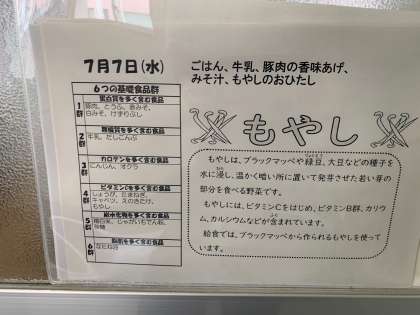 7月7日(水)
ごはん、牛乳、豚肉の香味あげ、
みそ汁、もやしのおひたし
6つの基礎食品群
1群
蛋白質を多く含む食品
豚肉、とうふ、赤みそ、
白みそ、けずりぶし
2群
無機質を多く含む食品
牛乳、だしこんぶ
3群
カロテンを多く含む食品
にんじん、オクラ
4群
ビタミンCを多く含む食品
しょうが、玉ねぎ
キャベツ、えのきたけ、
もやし
5群
炭水化物を多く含む食品
精白米、じゃがいもでん粉、
砂糖
6群
脂肪を多く含む食品
なたね油
もやし
もやしは、ブラックマッペや緑豆、大豆などの種子を
水に浸し、温かく暗い所に置いて発芽させた若い芽の
部分を食べる野菜です。
もやしには、ビタミンCをはじめ、ビタミンB群、カリウ
ム、カルシウムなどが含まれています。
給食では、ブラックマッペから作られるもやしを使って
います。